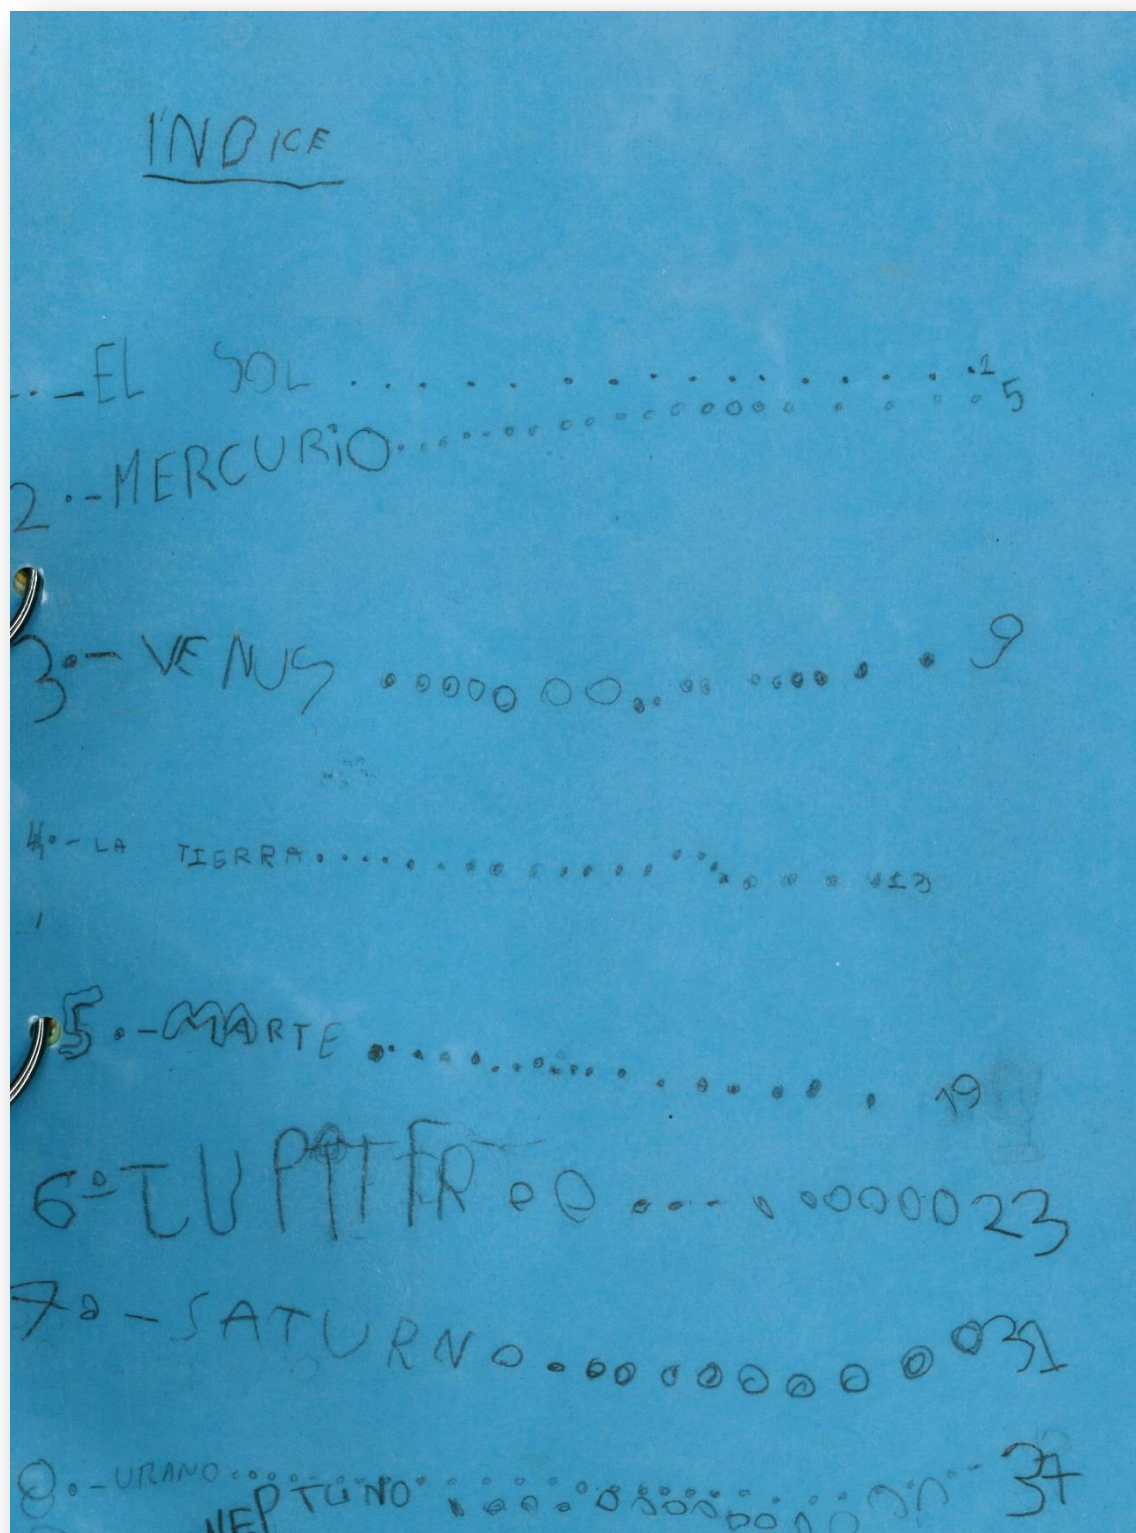 ÍNDICE
..._EL SOL . . . . . . . . . . . . . . .1
2.-MERCURIO.......................5
3.-VENUS ....................9
4.-LA TIERRA.......................13
5.-MARTE ....................19
6º-JUPITER ............23
7º-SATURNO..........31
8.-URANO....................37
NEPTUNO ...............